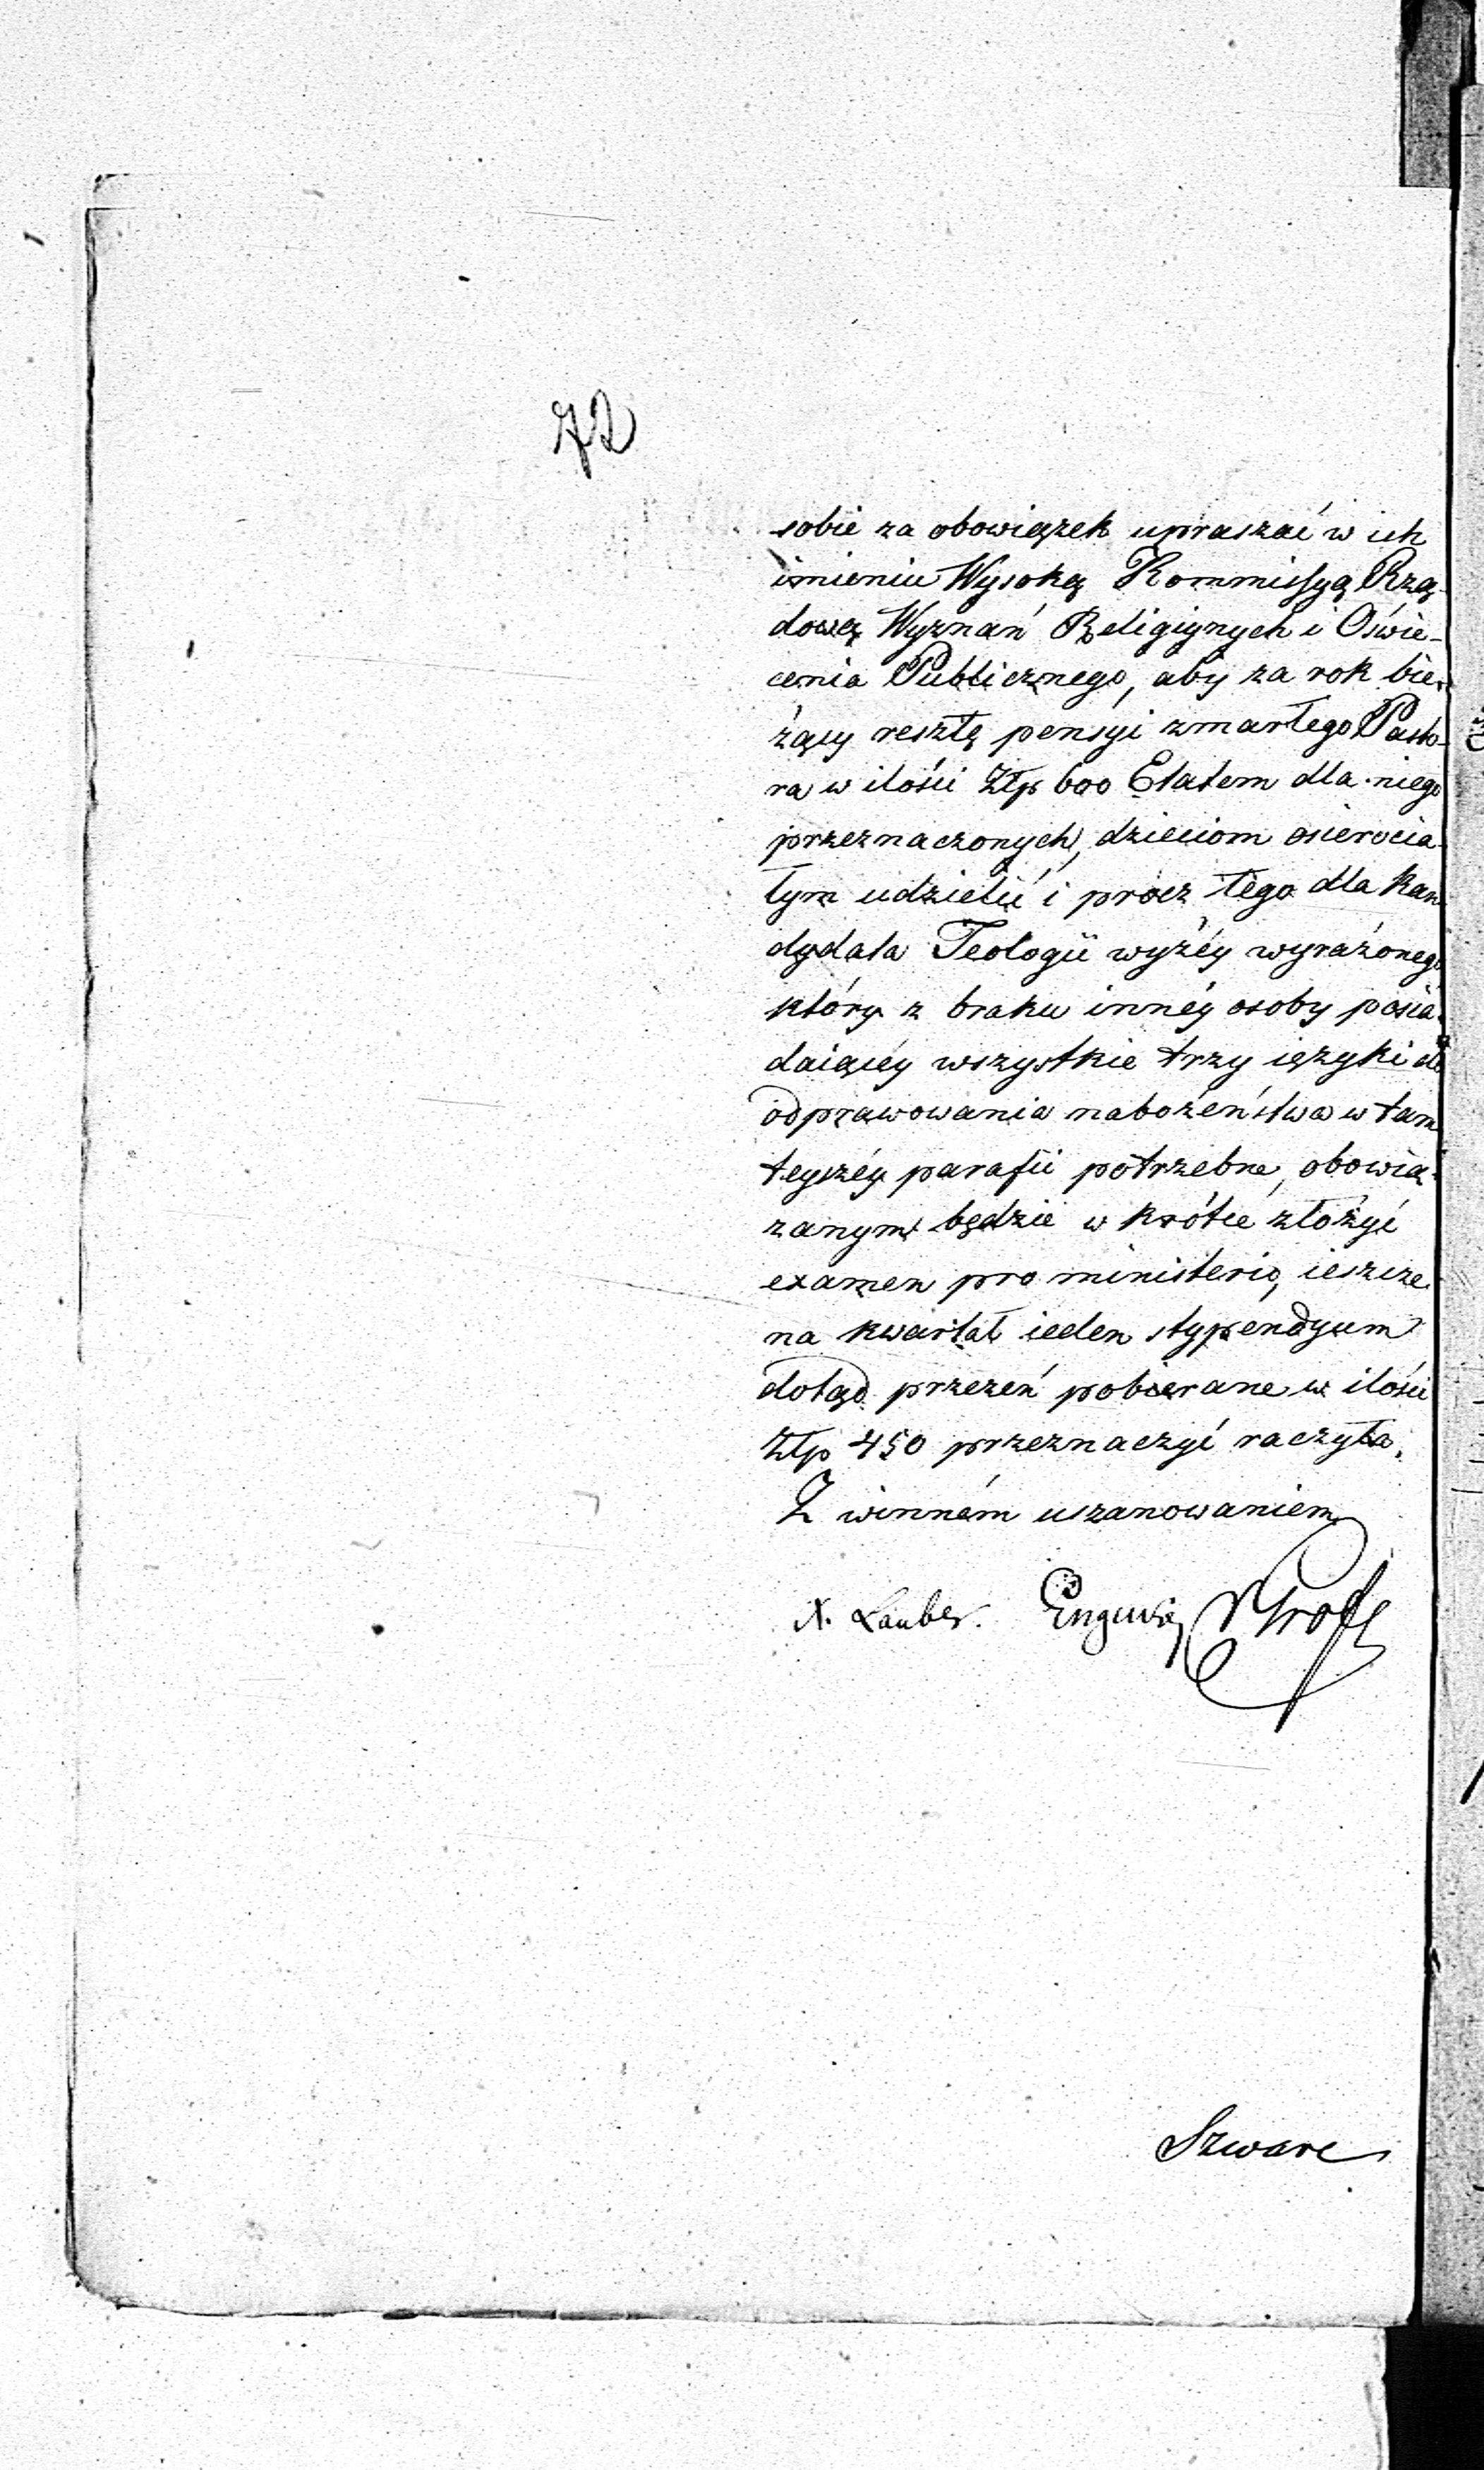 72
sobie za obowiązek upraszać w ich
imieniu Wysoką Kommissyą Rzą-
dową Wyznań Religiynych i Oświe-
cenia Publicznego, aby za rok bie-
żący resztę pensyi zmarłego Pasto-
ra w ilości Złp 600 Etatem dla niego
przeznaczonych, dzieciom osierocia-
łym udzielić i prócz tego dla kan
dydata Teologii wyżéy wyrażonego
który z braku innéy osoby posia-
daiącéy wszystkie trzy ięzyki do
odprawowania nabożeństwa w tam
teyszéy parafii potrzebne, obowią-
zanym będzie w krótce złożyć
examen pro ministerio, ieszcze
na kwartał ieden stypendyum
dotąd przezeń pobierane w ilości
Złp 450 przeznaczyć raczyła.
Z winném uszanowaniem
X. Lauber.
Szwarc